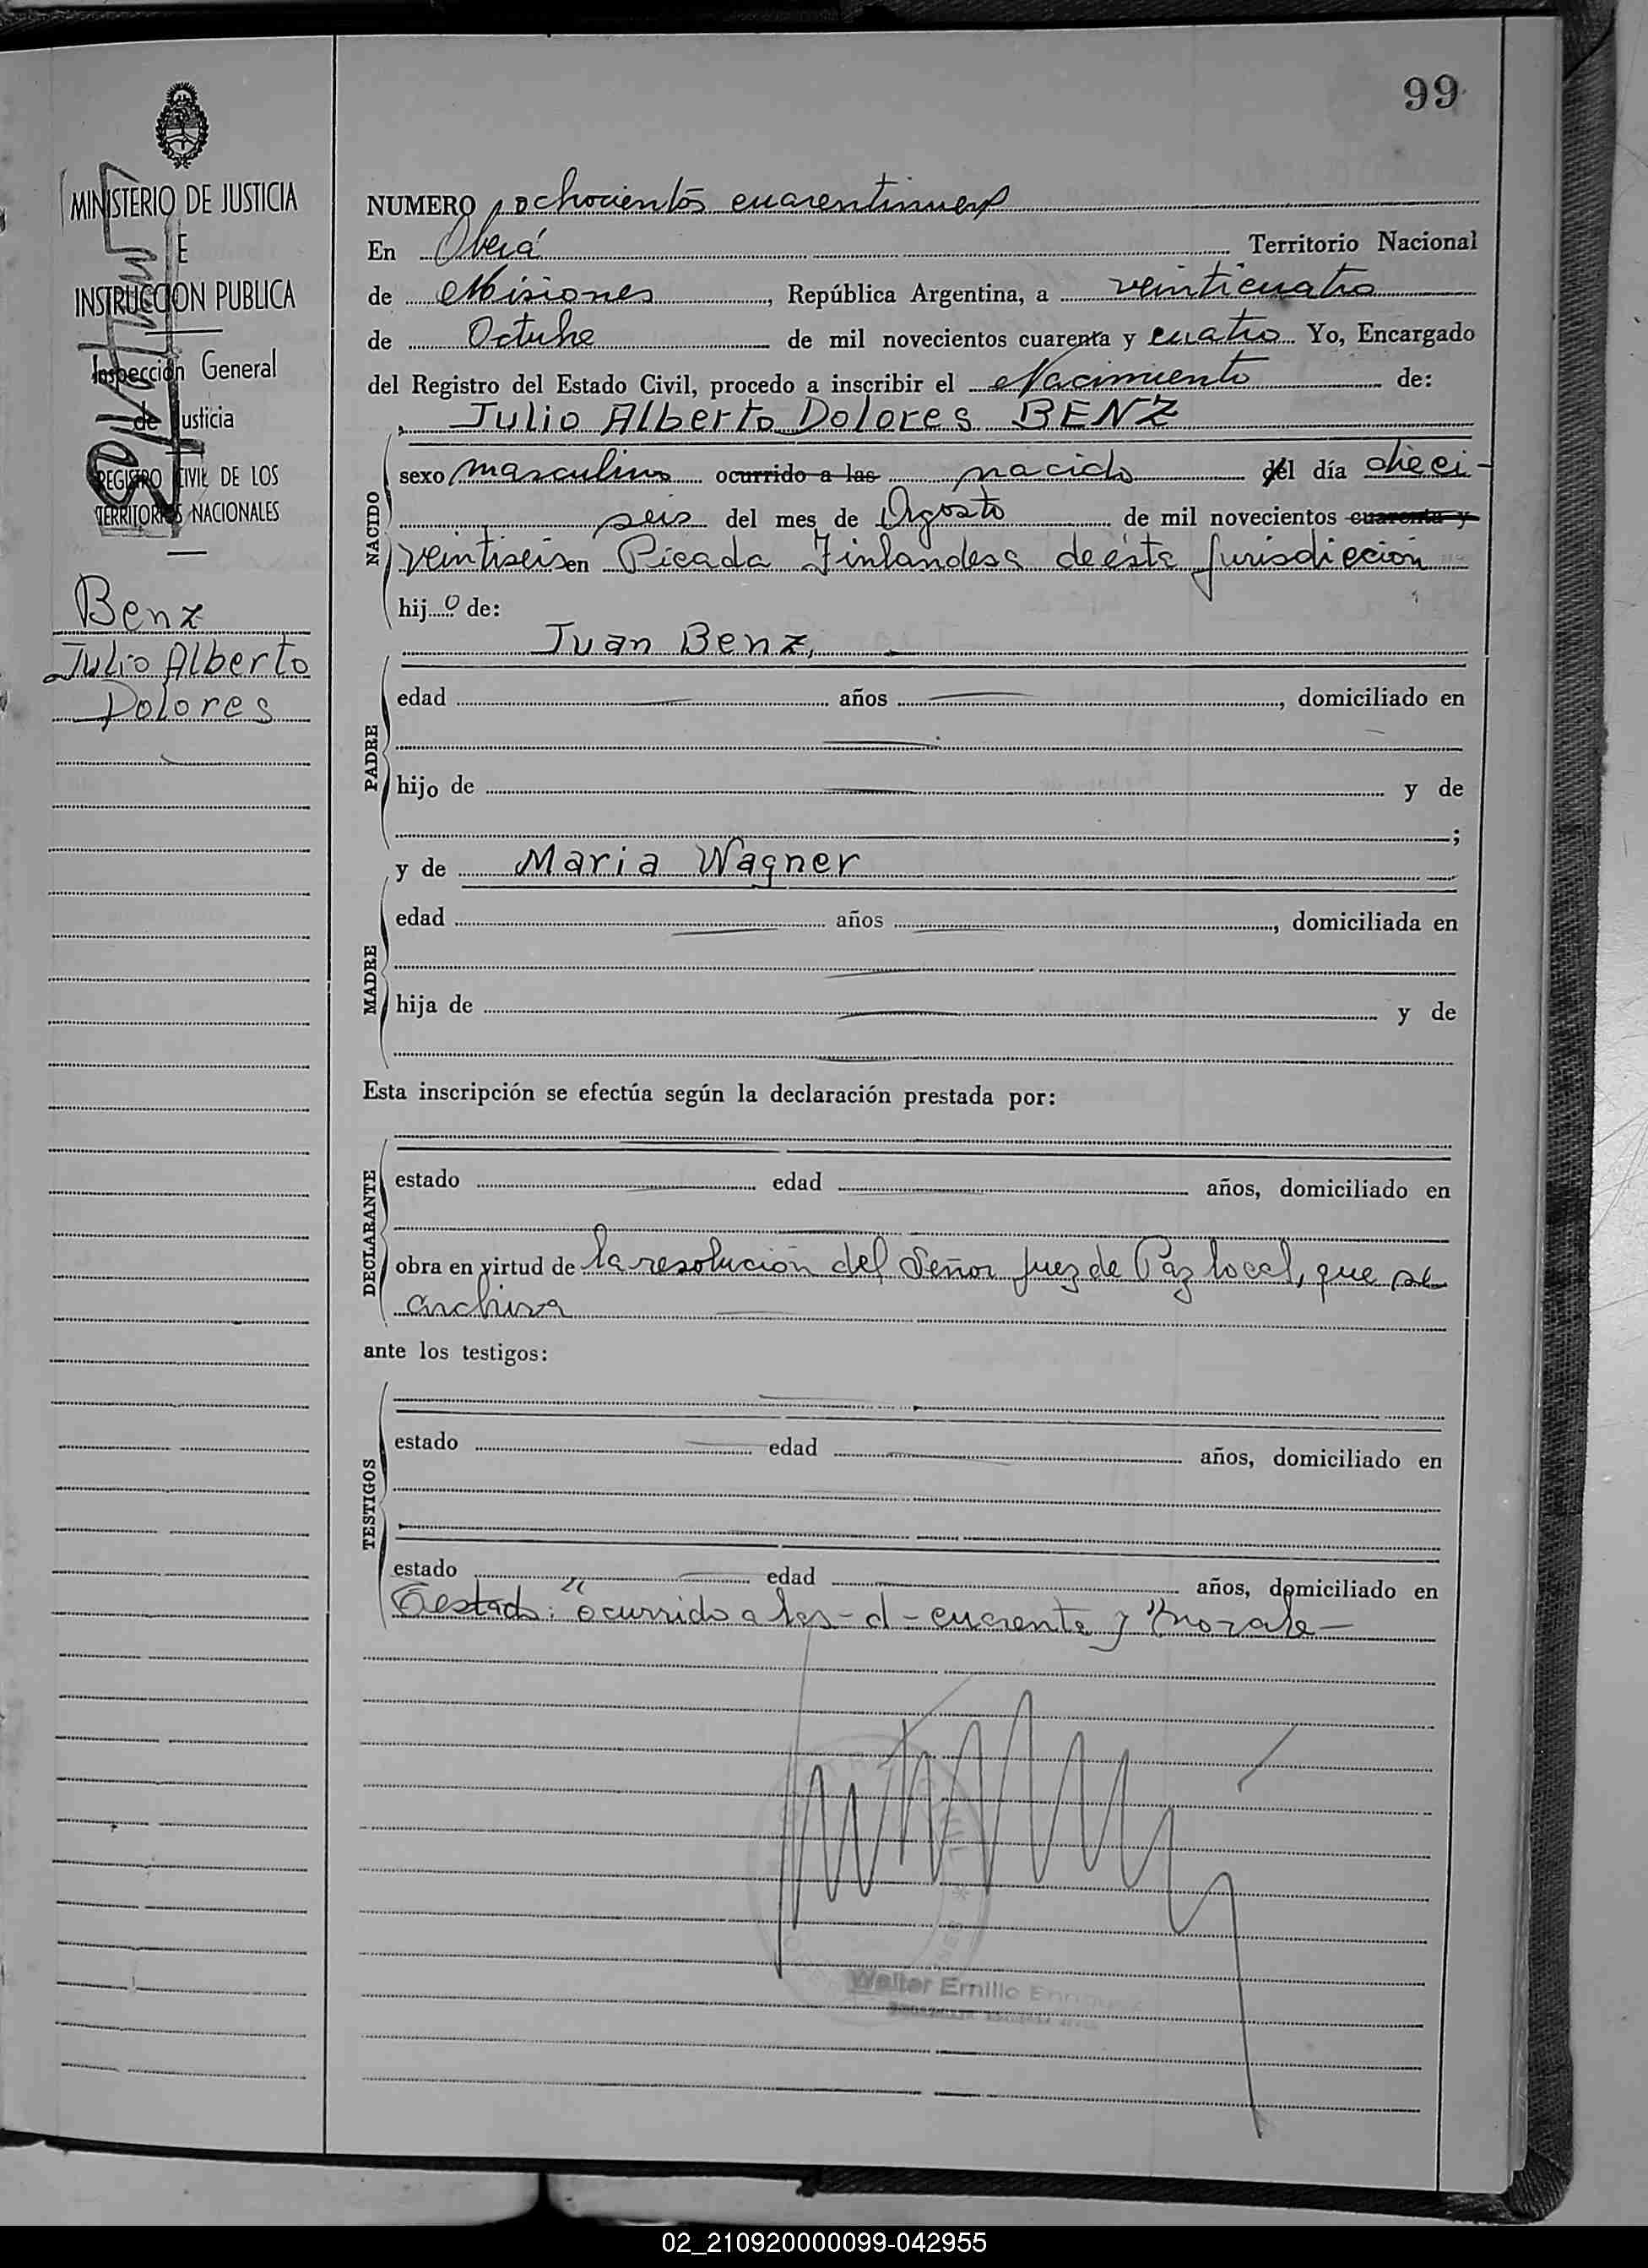 99
MINISTERIO DE JUSTICIA
E
INSTRUCCION PUBLICA
Inspección General
de Justicia
REGISTRO CIVIL DE LOS
TERRITORIOS NACIONALES
Benz
Julio Alberto
Dolores
NUMERO ochocientos cuarentinueve
En Oberá Territorio Nacional
de Misiones, República Argentina, a veinticuatro
de Octubre de mil novecientos cuarenta y cuatro Yo, Encargado
del Registro del Estado Civil, procedo a inscribir el Nacimiento de:
Julio Alberto Dolores BENZ
NACIDO
sexo masculino ocurrido a las nacido del día dieci-
seis del mes de Agosto de mil novecientos cuarenta y
veintiseis en Picada Finlandesa de ésta Jurisdicción
hijo de:
Juan Benz,
PADRE
edad años , domiciliado en
hijo de y de
;
y de Maria Wagner
MADRE
edad años , domiciliada en
hija de y de
Esta inscripción se efectúa según la declaración prestada por:
DECLARANTE
estado edad años, domiciliado en
obra en virtud de la resolución del Señor Juez de Paz local, que se
archiva
ante los testigos:
TESTIGOS
estado edad años, domiciliado en
estado edad años, domiciliado en
Testado: "ocurrido a las - d - cuarenta y" no vale -
Walter Emilio
02_210920000099-042955